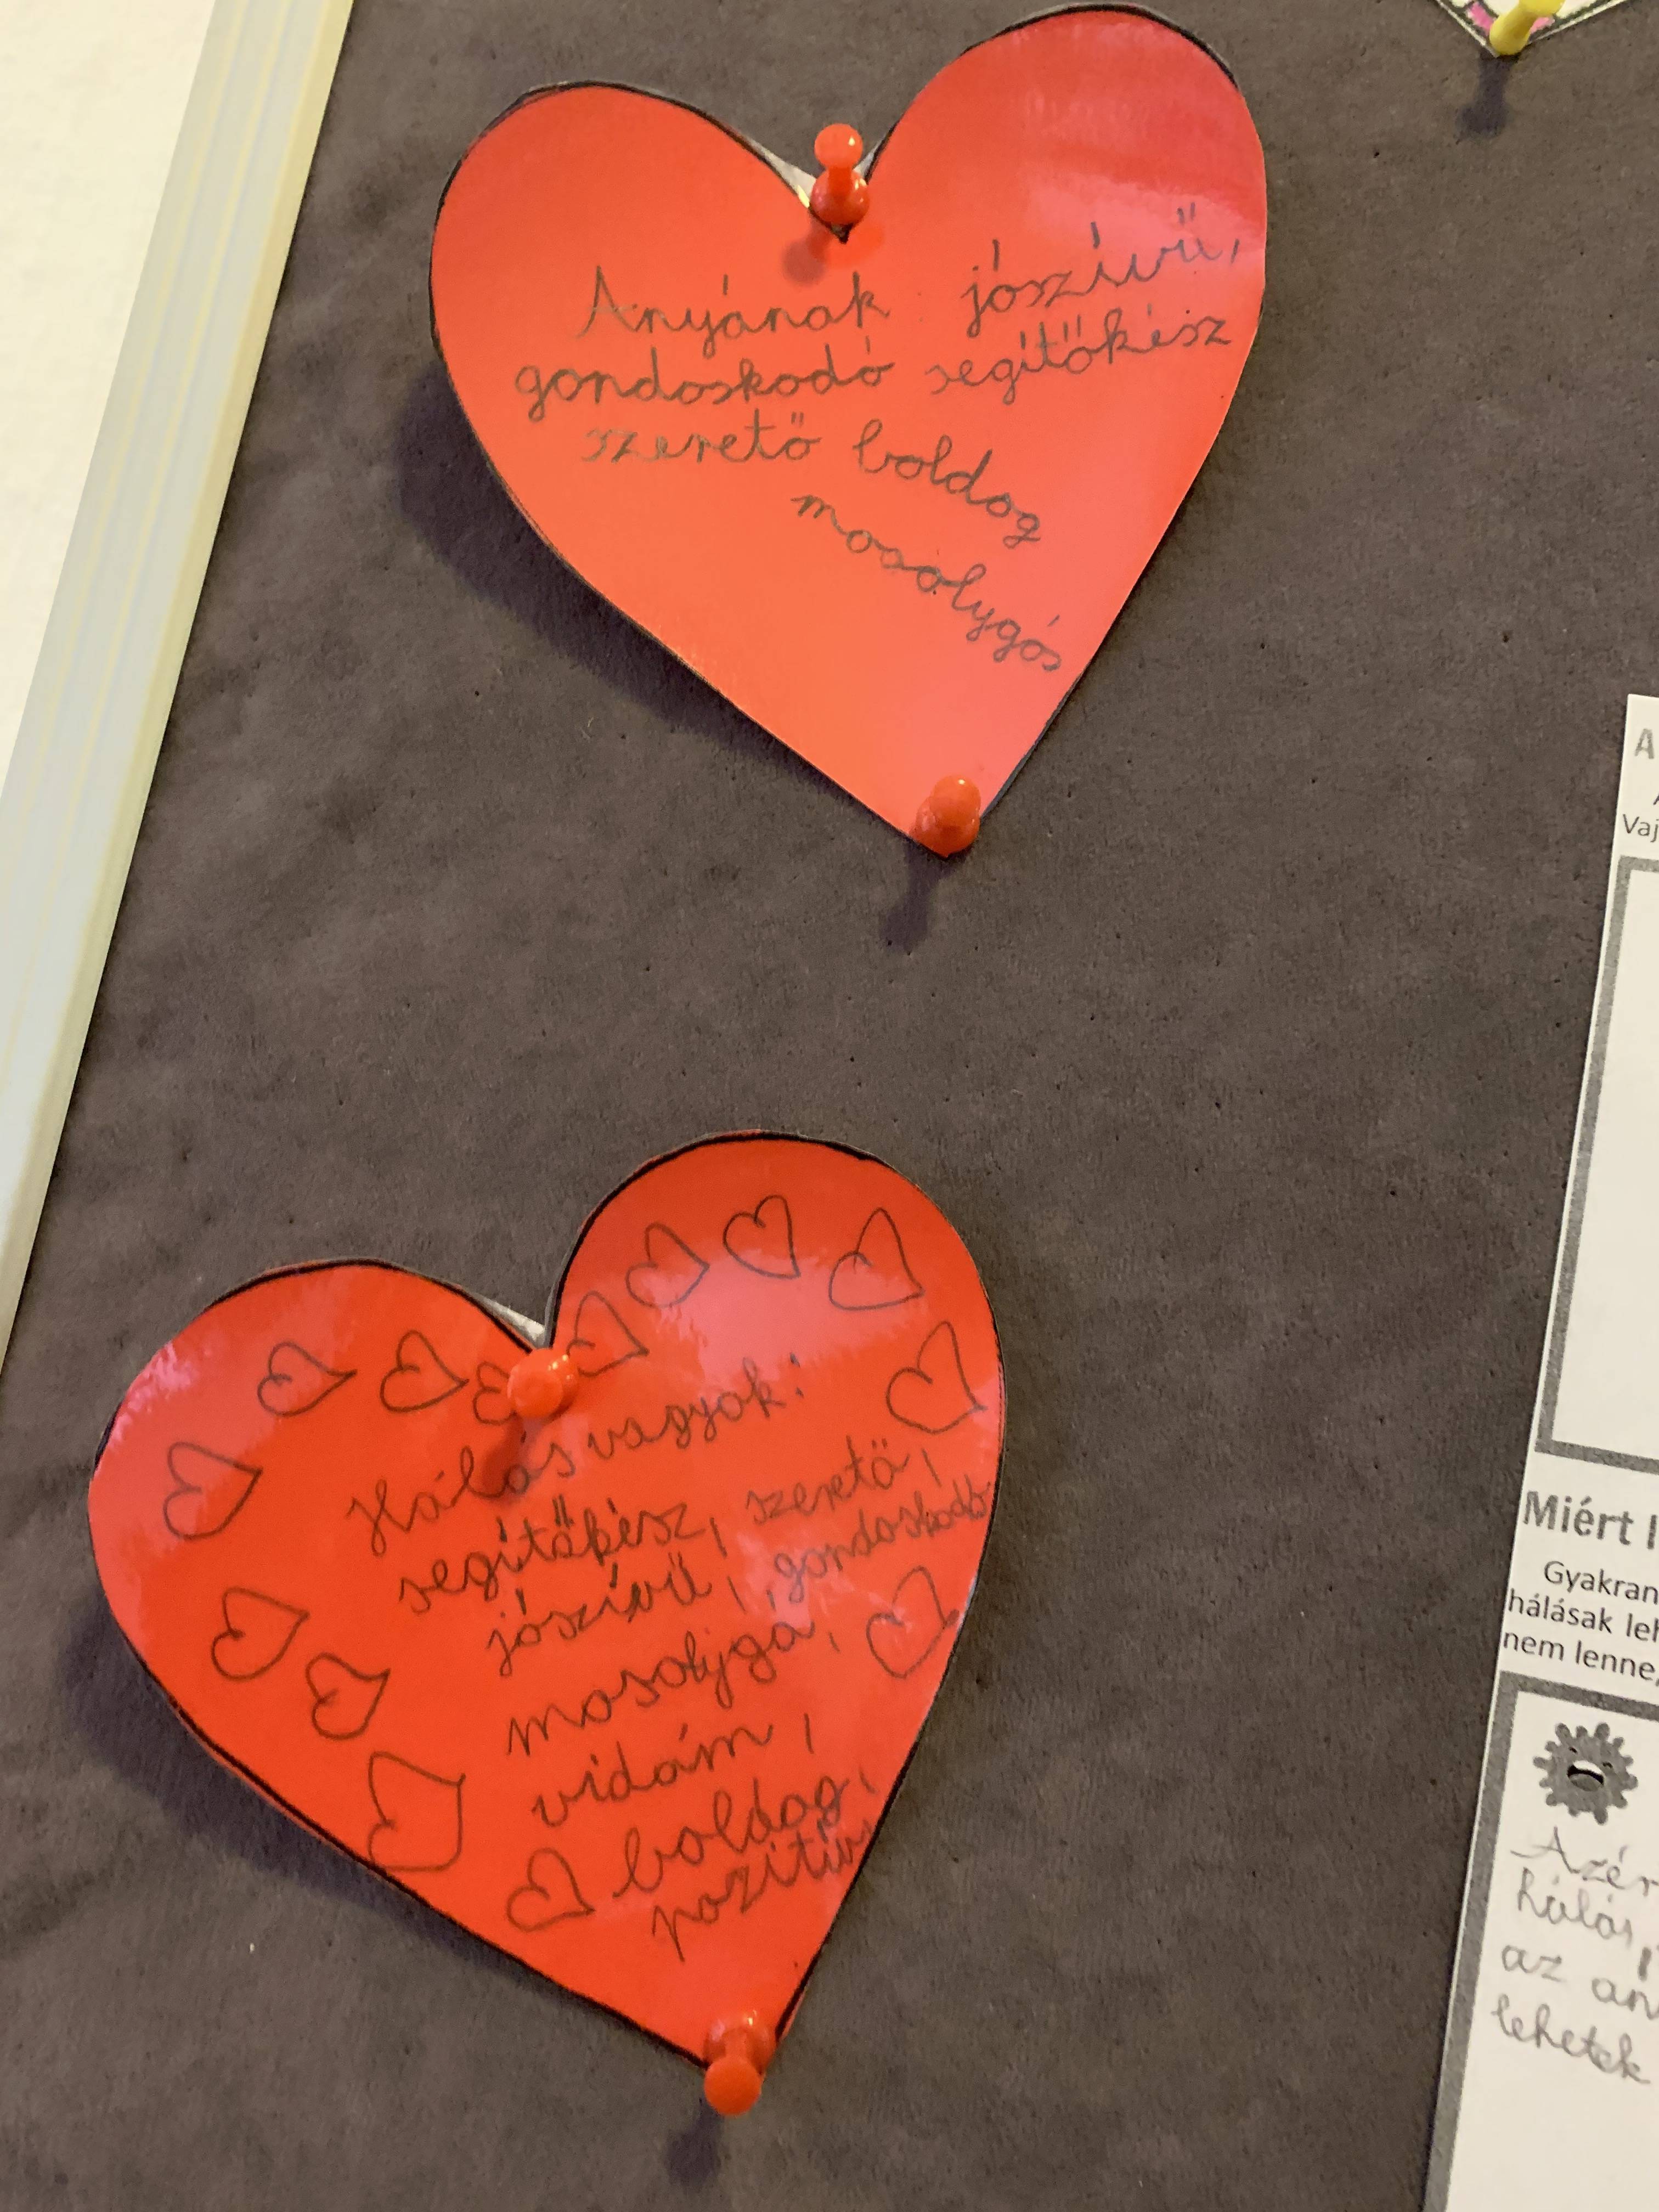 Anyának jószívű,
gondoskodó segítőkész
szerető boldog
mosolygós
Hálás vagyok:
segítőkész, szerető,
jószívű, gondoskodó
mosolygó,
vidám,
boldog,
pozitív
A
Vaj
Miért l
Gyakran
hálásak leh
nem lenne,
Azér
hálás,
az an
lehetek